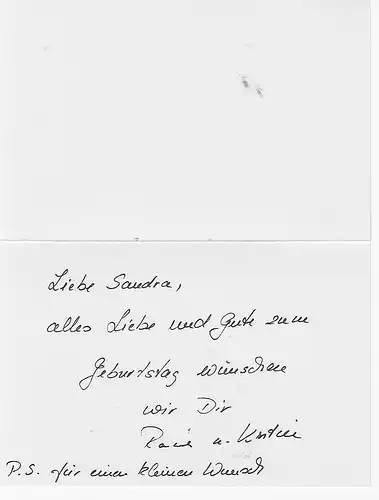 Liebe Sandra,
alles Liebe und Gute zum
Geburtstag wünschen
wir Dir
u.
P.S. für einen kleinen Wunsch